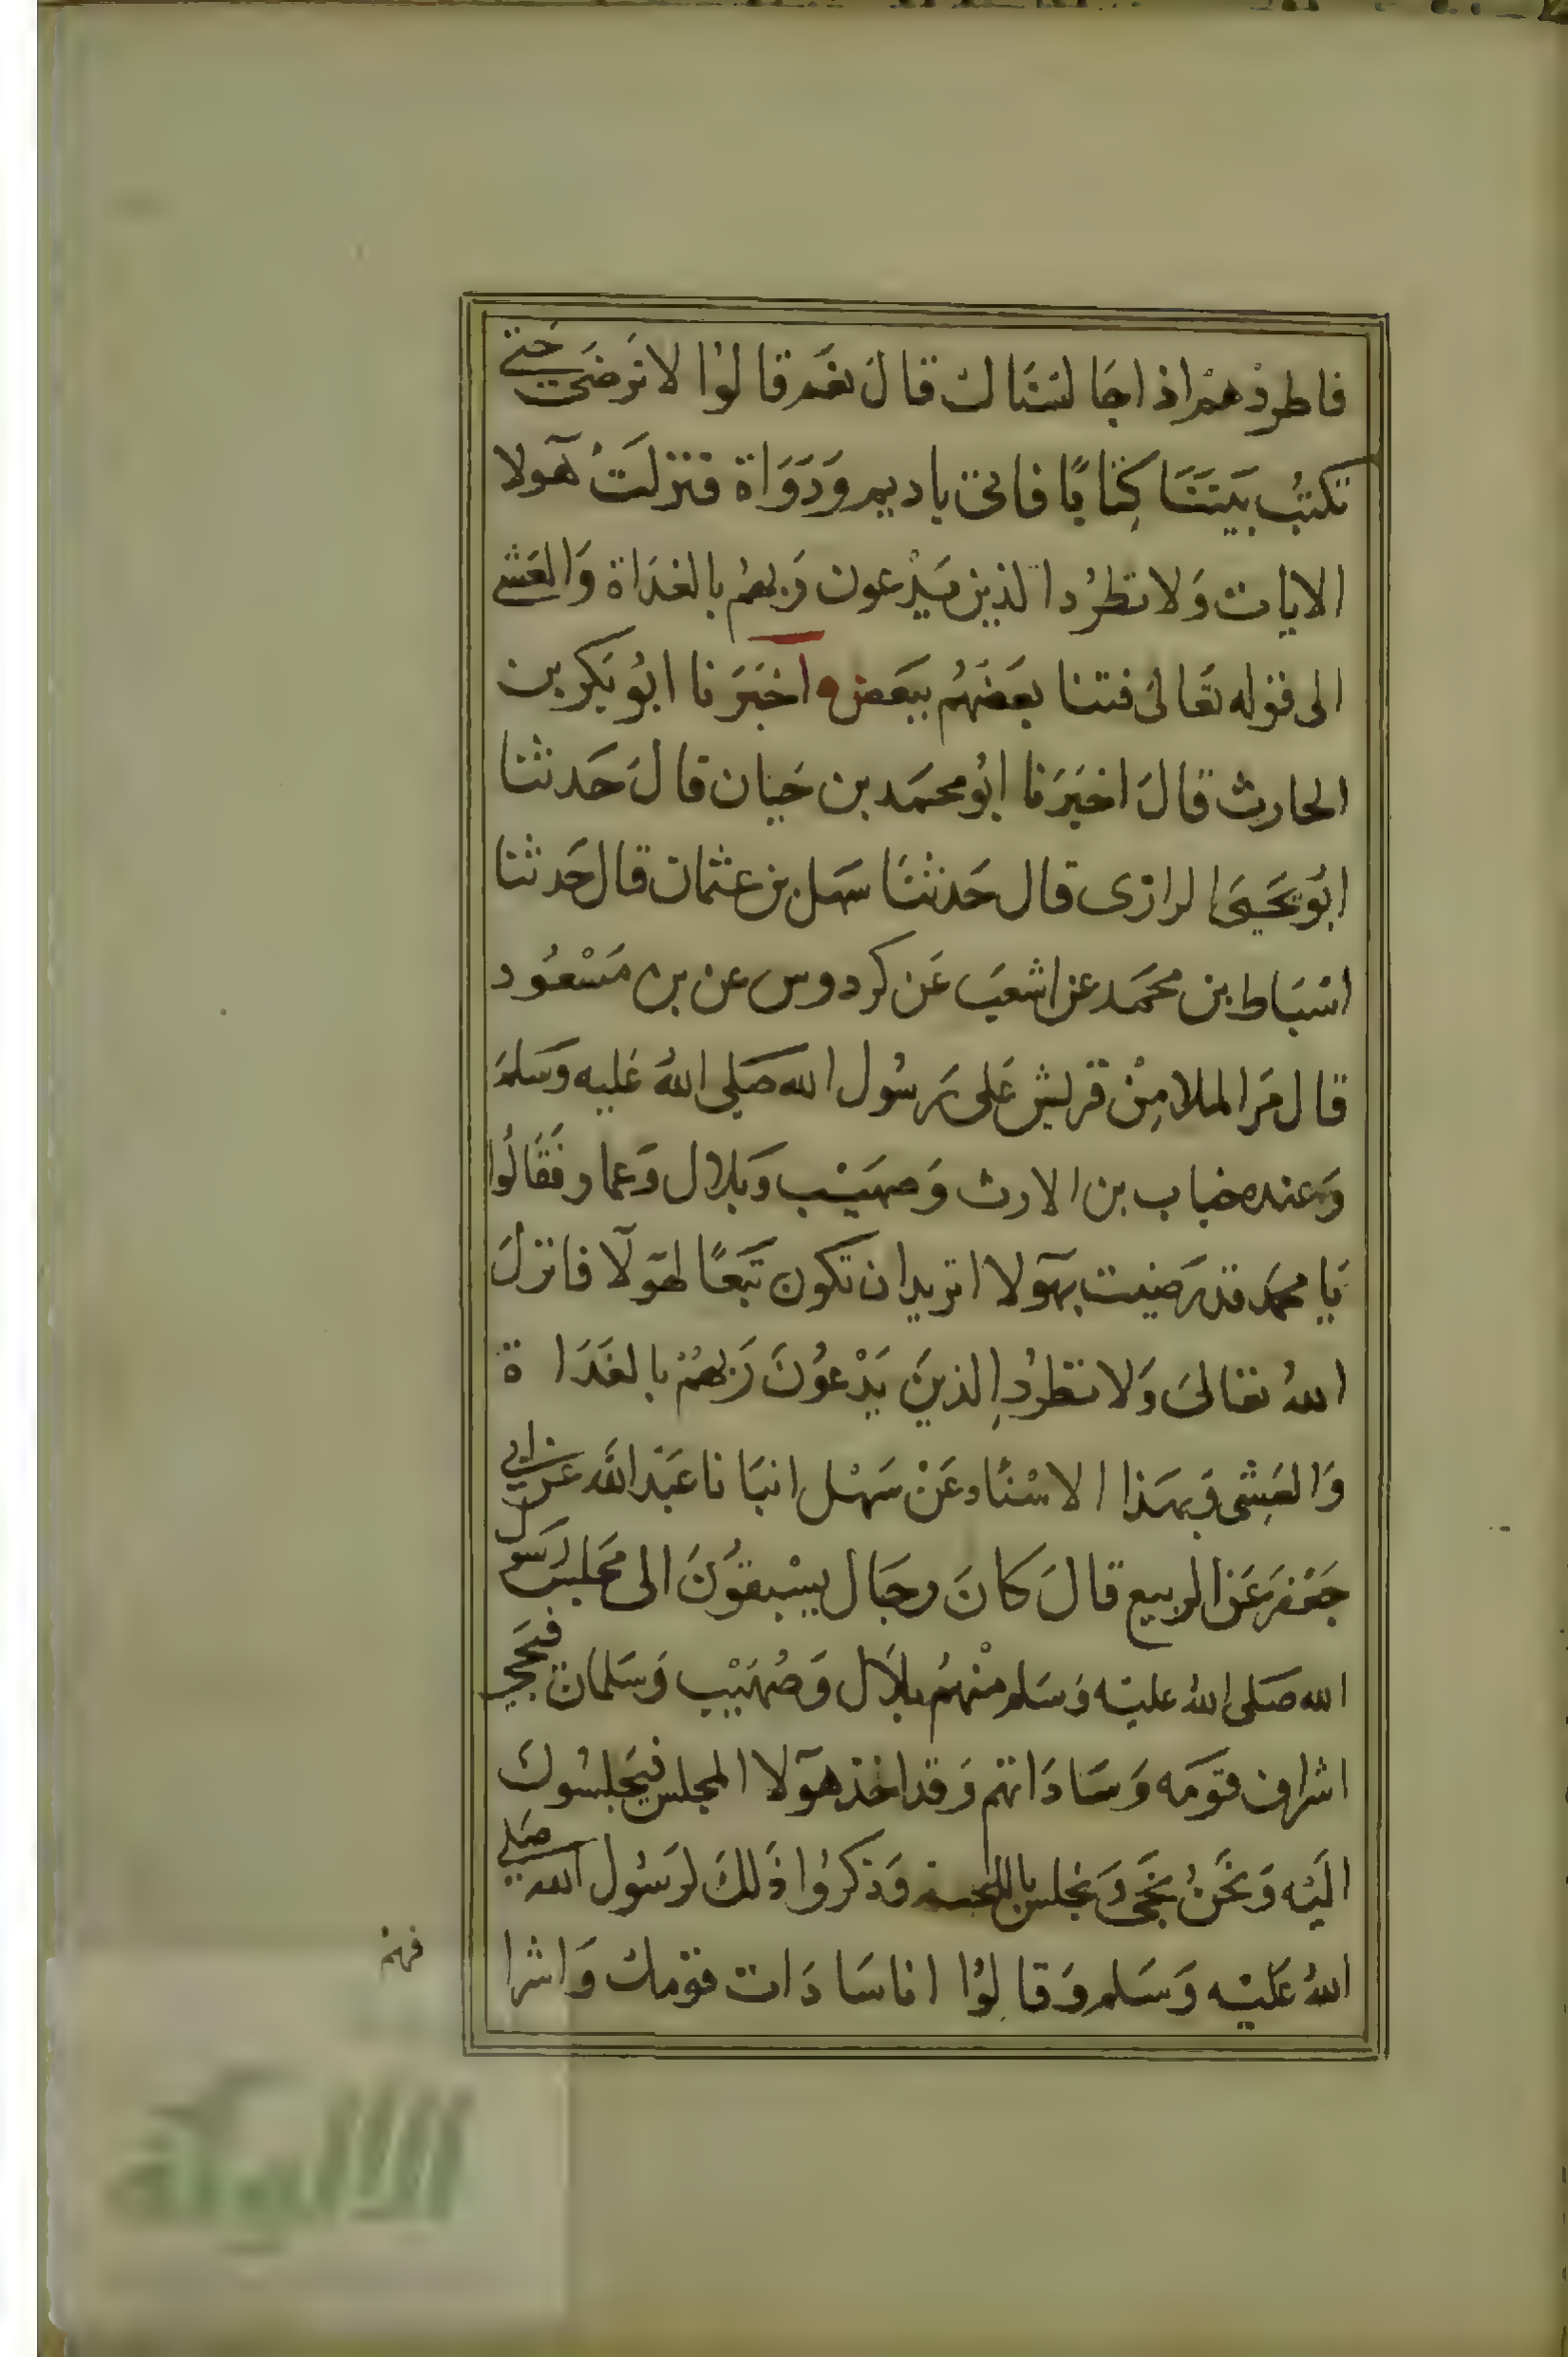 فاطردْهمْ اذا جَا لسْنَا لك قالَ نعَم قالوُا لا نَرضَى حَتى
تكتبُ بَيْنَنَا كِتابًا فاتى باديم وَدَوَاة فنزلَتْ هَٓولا
الايات وَلا تطرُد الذين يَدْعون رَبهمْ بالغدَاة وَالعَشى
الى قوله تعَالى فتنا بعَضَهُم ببَعَض آخبَرَنا ابُو بَكر بن
الحارث قالَ اخبَرَنا ابُو محمَد بن حَيان قالَ حَدثنا
ابُو يحَيىَ الرازى قال حَدثنَا سَهل بن عثمان قال حَدثنا
اسْبَاط بن محمَد عن اشعَب عَن كردوس عن بن مَسْعُود
قال مَرا لملا مِنْ قريش عَلى رسُول الله صَلى اللهُ عَليه وَسَلمَ
وَعنده خباب بن الارث وَصهَيْب وَبلال وَعمار فَقَالُوا
يَا محمَد قد رَضيت بهَٓولا اتريد ان تكون تَبَعًا لهَٓولَا فانزلَ
اللهُ تعَالىَ وَلا تطرُدِ الذينَ يَدْعوُنَ رَبهمْ بالغَدَا ة
وَالعَشِى وَبهَذا الاسْنَاد عَنْ سَهْل انبَانا عَبْد الله عَن ابى
جَعْفرَ عَن الربيع قالَ كانَ رجَال يسْبقوُنَ الى مَجلسِ رَسول
الله صَلى اللهُ عليْه وَسَلم منْهُم بلَال وَصُهَيْب وَسَلمان فيَجى
اشراف قوَمه وَسَادَاتهم وَقد اخذ هَٓولا المجلس فيَجلسُوك
اليْه وَنحَنُ نجَى وَنجلس وَذكرُوا ذَلكَ لرَسُول الله صَلى
اللهُ عَليْه وَسَلم وَقالوُا اناسَا دَات قوْمك وَاشرا
فهم
الالوكة